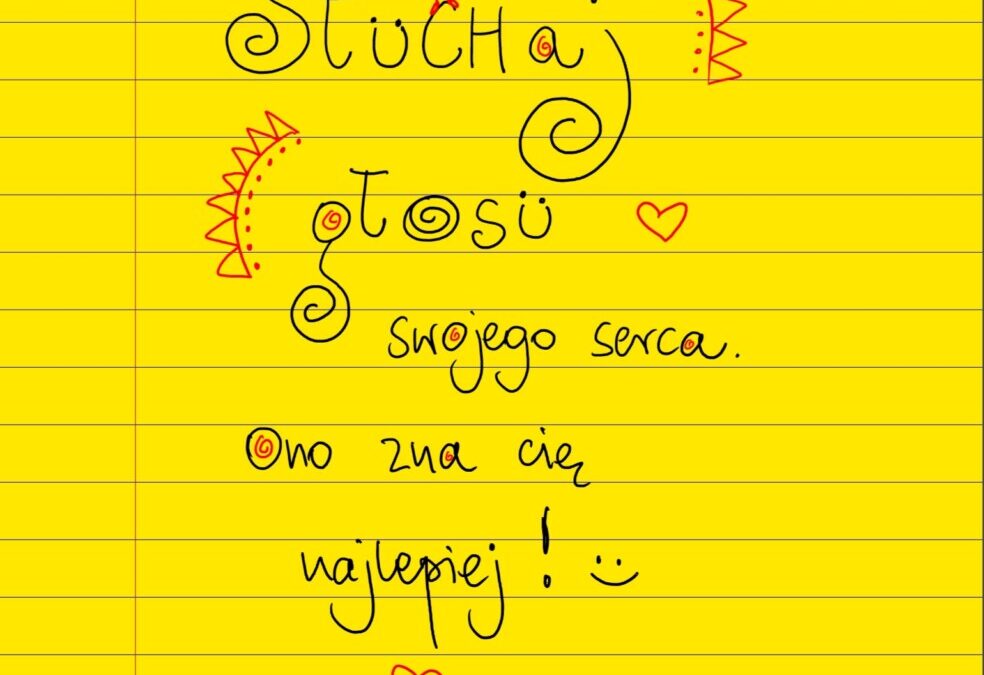 SŁÜCHaj
głosü
swojego serca.
Ono zna cię
najlepiej!